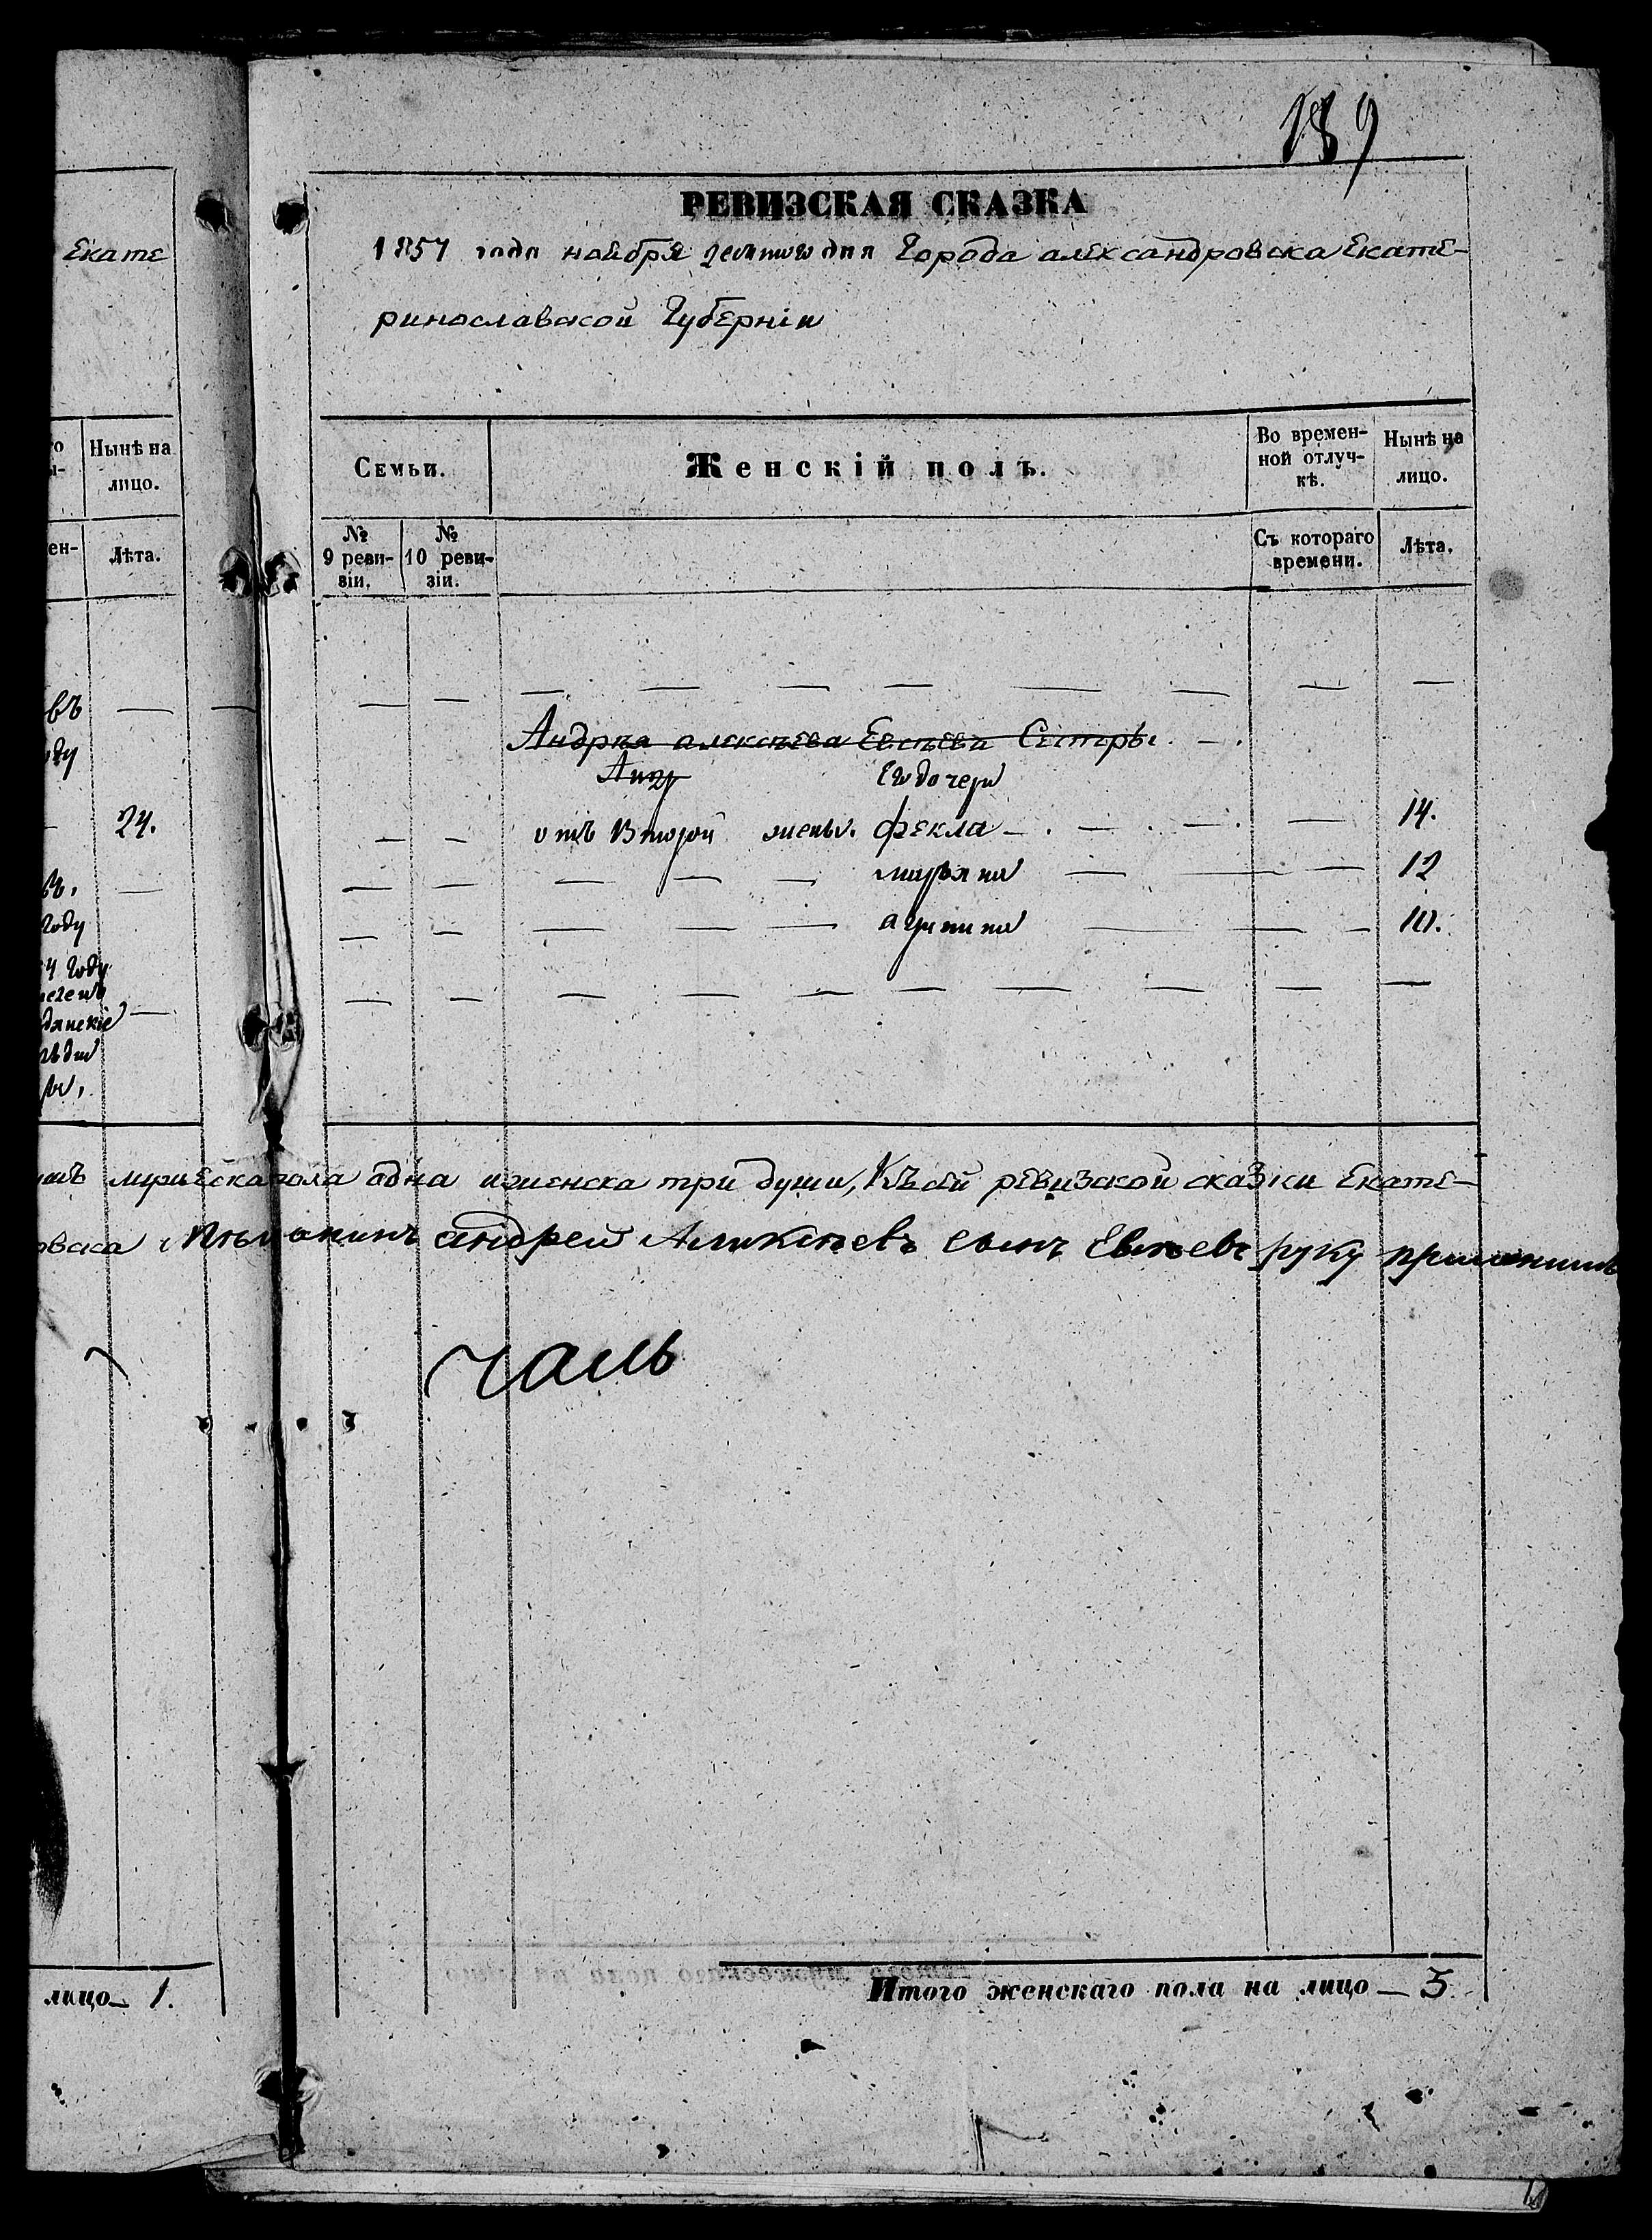 189
РЕВИЗСКАЯ СКАЗКА
Екате
1857 года ноября десятого дня Города александровска Екате-
ринославской Губерніи
Нынѣ на
лицо.
Лѣта.
Семьи.
Женскій полъ.
Во времен-
ной отлуч-
кѣ.
Нынѣ на
лицо.
№
9 реви-
зіи.
№
10 реви-
зіи.
Съ котораго
времени.
Лѣта.
Андрѣя алексѣева Евсѣева Сестры
Андр Его дочери
24.
отъ Второй жены. фекла 14.
марьяна 12
агрипина 10.
Году
4 Году
пола одна и женска три души, Къ сей ревизской сказки Екате-
андрей Аликсѣевъ сынъ Евсѣевъ руку приложилъ
чаль
лицо 1.
Итого женскаго пола на лицо 3.